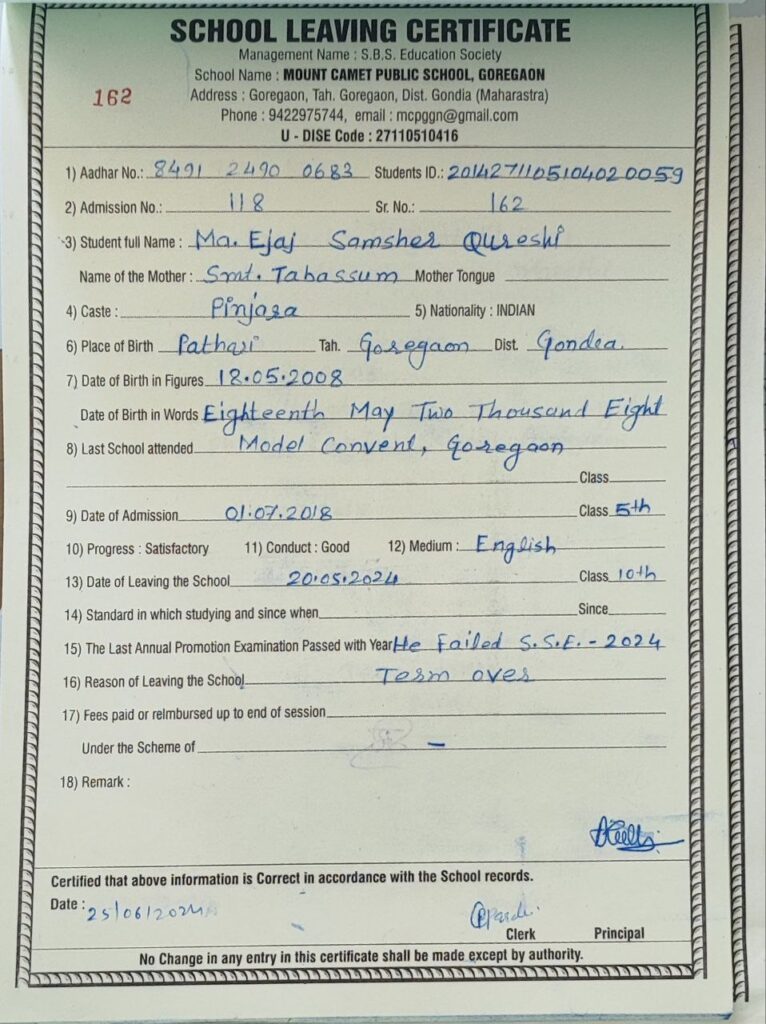 SCHOOL LEAVING CERTIFICATE
Management Name : S.B.S. Education Society
School Name : MOUNT CAMET PUBLIC SCHOOL, GOREGAON
162
Address : Goregaon, Tah. Goregaon, Dist. Gondia (Maharastra)
Phone : 9422975744, email : mcpggn@gmail.com
U - DISE Code : 27110510416
1) Aadhar No.: 8491 2490 0683 Students ID.: 2014271105104020059
2) Admission No.: 118 Sr. No.: 162
3) Student full Name : Ma. Ejaj Samsher Qureshi
Name of the Mother : Smt. Tabassum Mother Tongue
4) Caste : Pinjara 5) Nationality : INDIAN
6) Place of Birth Pathari Tah. Goregaon Dist. Gondea.
7) Date of Birth in Figures 18.05.2008
Date of Birth in Words Eighteenth May Two Thousand Eight
8) Last School attended Model Convent, Goregaon
Class
9) Date of Admission 01.07.2018 Class 5th
10) Progress : Satisfactory 11) Conduct : Good 12) Medium : English
13) Date of Leaving the School 20.05.2024 Class 10th
14) Standard in which studying and since when Since
15) The Last Annual Promotion Examination Passed with Year He Failed S.S.E. - 2024
16) Reason of Leaving the School Term over
17) Fees paid or reimbursed up to end of session
Under the Scheme of –
18) Remark :
Certified that above information is Correct in accordance with the School records.
Date : 25/06/2024
Clerk Principal
No Change in any entry in this certificate shall be made except by authority.